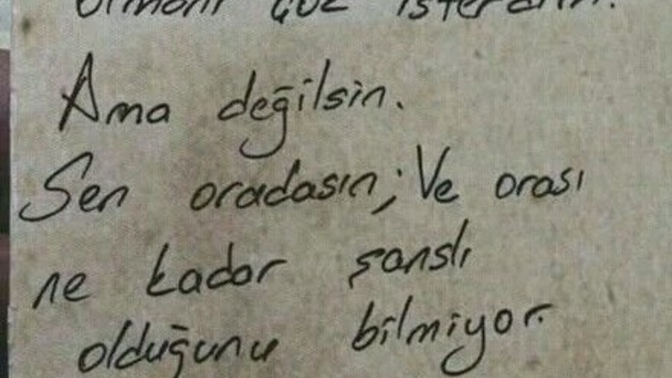 olmanı çok isterdim.
Ama değilsin.
Sen oradasın; Ve orası
ne kadar şanslı
olduğunu bilmiyor.